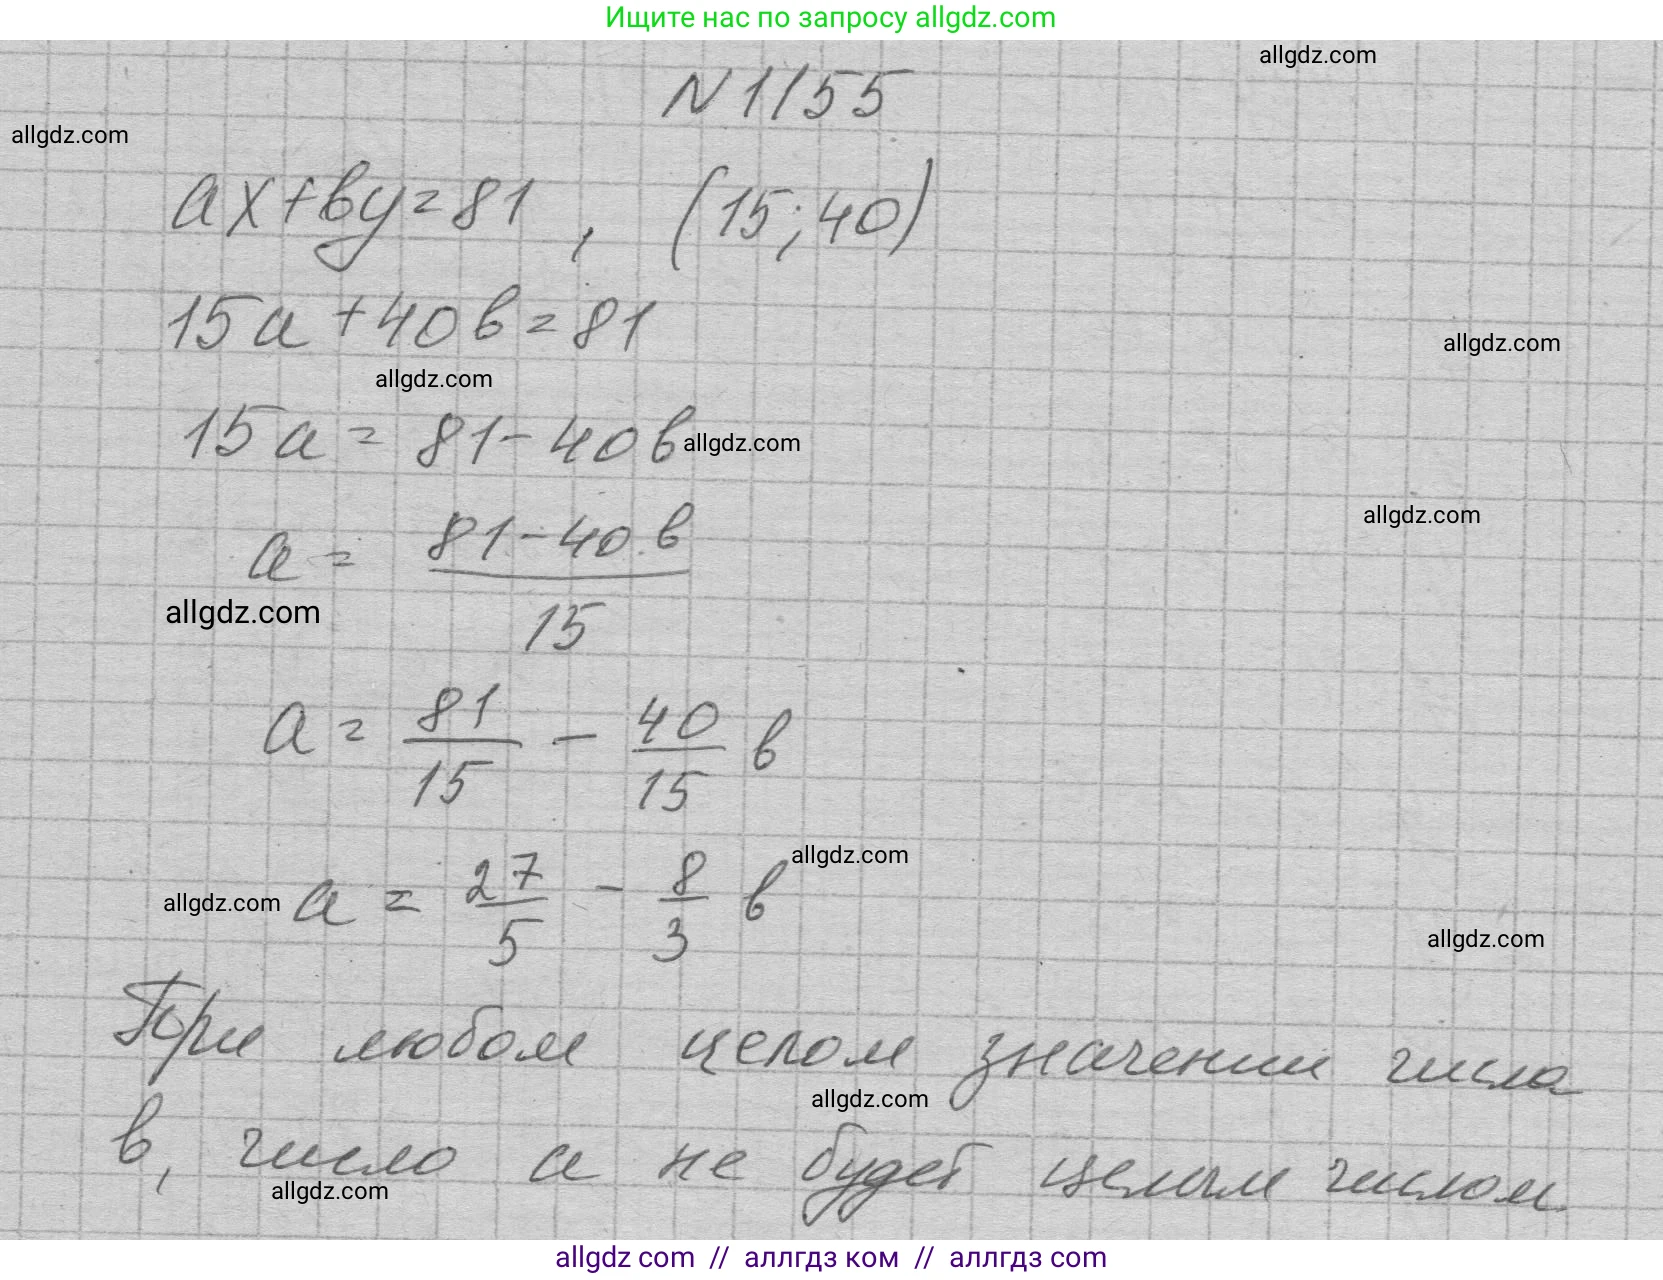 Ищите нас по запросу allgdz.com
allgdz.com
N 1155
allgdz.com
ax+вy=81, (15;40)
15a+40в=81
allgdz.com
allgdz.com
15a = 81-40в
allgdz.com
allgdz.com
a = 81-40в / 15
allgdz.com
a = 81/15 - 40/15 в
allgdz.com
a = 27/5 - 8/3 в
allgdz.com
allgdz.com
При любом целом значении числа
allgdz.com
в, число a не будет целым числом.
allgdz.com
allgdz com // аллгдз ком // аллгдз com